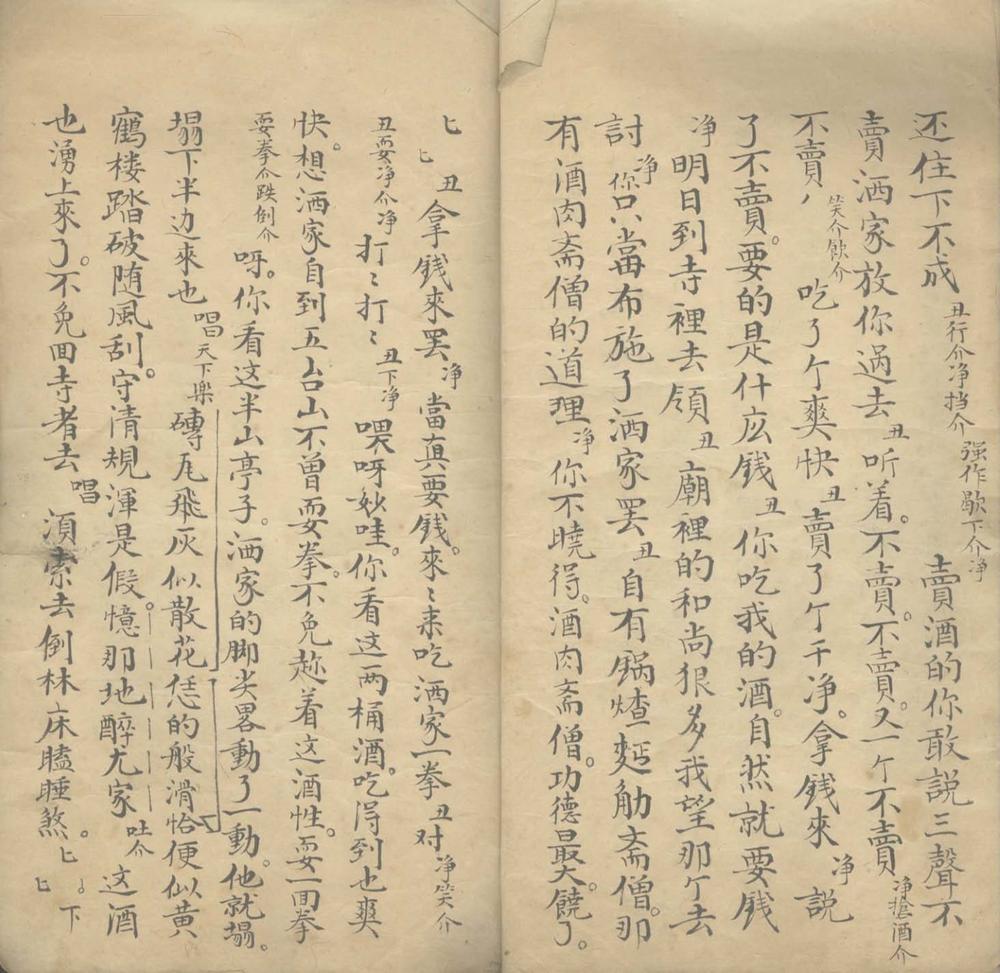 还住下不成 丑行介净挡介 强作歇下介净 卖酒的你敢説三聲不
賣洒家放你過去丑听着。不賣。不賣。又一个不賣 净搶酒介
不賣 笑介飲介 吃了个爽快丑賣了个干净。拿钱來净説
了不賣。要的是什庅钱丑你吃我的酒。自然就要钱
净明日到寺裡去領丑廟裡的和尚狠多我望那个去
討净你只當布施了洒家罢丑自有鍋煠麪觔斋僧。那
有酒肉斋僧的道理净你不曉得。酒肉斋僧。功德最大。饒了。
匕匕丑拿钱來罢净當真要钱。來〻来吃洒家一拳丑对净笑介
丑耍净介净打〻打〻丑下净喂呀妙哇。你看这两桶酒。吃淂到也爽
快。想洒家自到五台山不曾耍拳。不免趂着这酒性。耍一囬拳
耍拳介跌倒介呀。你看这半山亭子。洒家的脚尖畧動了一動。他就塌。
塌下半边來也唱天下樂磚瓦飛灰似散花恁的般滑恰便似黄
鶴楼踏破随風刮。守清規渾是假。憶那地醉尤家吐介这酒
也湧上來了。不免囬寺者去唱湏索去倒林床瞌睡煞。匕匕下